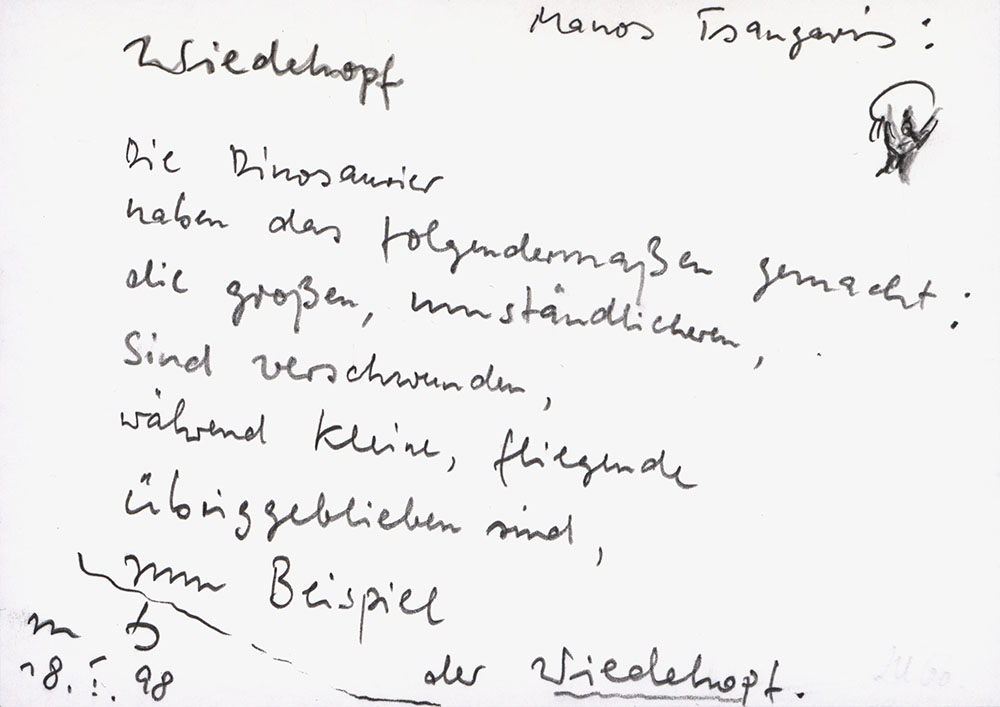 Manos Tsangaris:
Wiedehopf
Die Dinosaurier
haben das folgendermaßen gemacht:
die großen, umständlicheren,
sind verschwunden,
während kleine, fliegende
übriggeblieben sind,
zum Beispiel
der Wiedehopf.
18.I.98